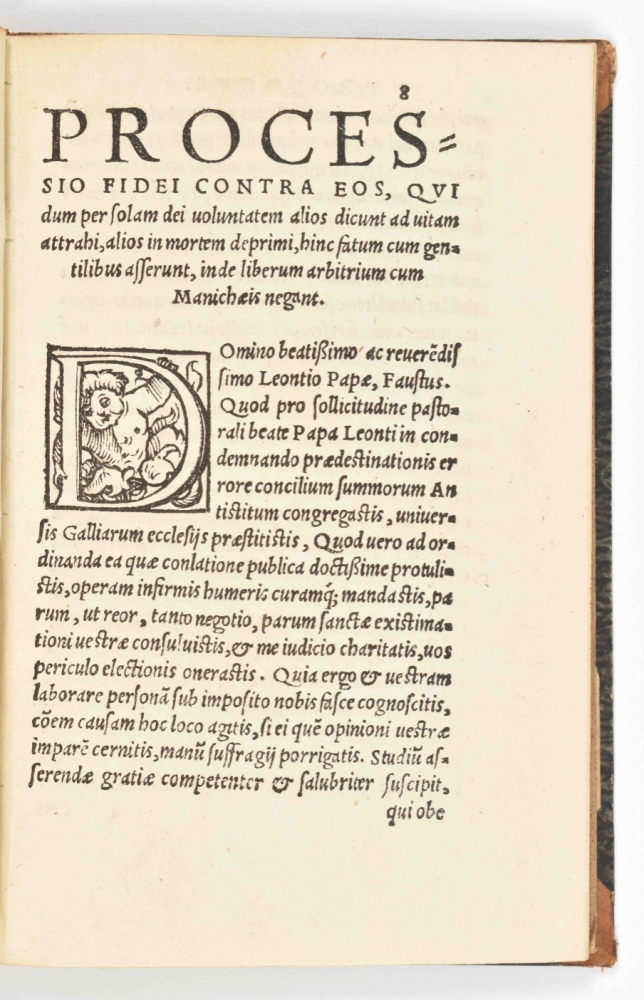 8
PROCES=
SIO FIDEI CONTRA EOS, QVI
dum per ſolam dei uoluntatem alios dicunt ad uitam
attrahi, alios in mortem deprimi, hinc fatum cum gen=
tilibus aſſerunt, inde liberum arbitrium cum
Manichæis negant.
Domino beatißimo ac reuerēdiſ
ſimo Leontio Papæ, Fauſtus.
Quod pro ſollicitudine paſto=
rali beate Papa Leonti in con=
demnando prædeſtinationis er
rore concilium ſummorum An
tiſtitum congregaſtis, uniuer=
ſis Galliarum eccleſijs præſtitiſtis, Quod uero ad or=
dinanda ea quæ conlatione publica doctißime protuli=
ſtis, operam infirmis humeris curamq́; mandaſtis, pa
rum, ut reor, tanto negotio, parum ſanctæ exiſtima=
tioni ueſtræ conſuluiſtis, & me iudicio charitatis, uos
periculo electionis oneraſtis. Quia ergo & ueſtram
laborare perſonā ſub impoſito nobis faſce cognoſcitis,
cōem cauſam hoc loco agitis, ſi ei quē opinioni ueſtræ
imparē cernitis, manū ſuffragij porrigatis. Studiū aſ=
ſerendæ gratiæ competenter & ſalubriter ſuſcipit,
qui obe